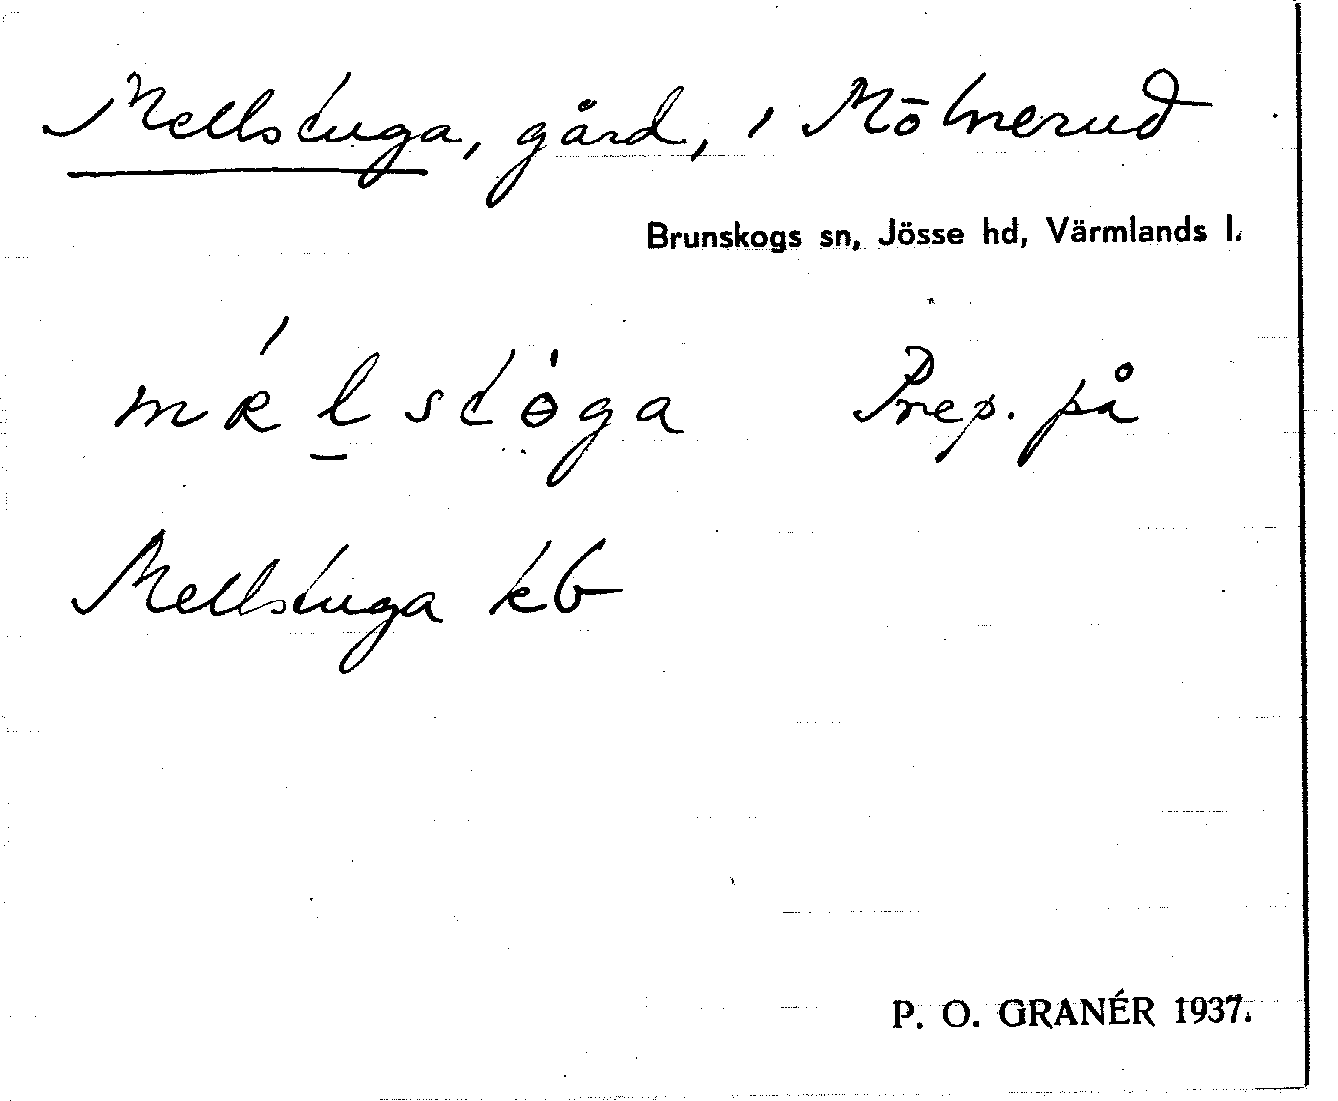 Mellstuga, gård, i Mölnerud
Brunskogs sn, Jösse hd, Värmlands l.
Prep. på
Mellstuga kb
P. O. GRANÉR 1937.